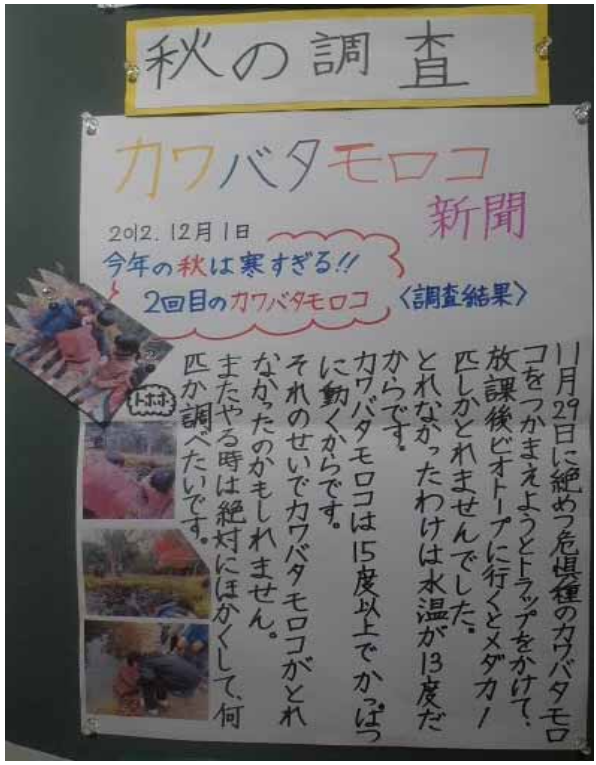 秋の調査
カワバタモロコ
新聞
2012.12月1日
今年の秋は寒すぎる!!
2回目のカワバタモロコ〈調査結果〉
トホホ
11月29日に絶めつ危惧種のカワバタモロ
コをつかまえようとトラップをかけて、
放課後ビオトープに行くとメダカ1
匹しかとれませんでした。
とれなかったわけは水温が13度だ
からです。
カワバタモロコは15度以上でかっぱつ
に動くからです。
それのせいでカワバタモロコがとれ
なかったのかもしれません。
またやる時は絶対にほかくして、何
匹か調べたいです。